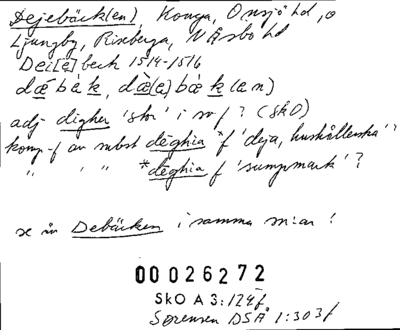 Dejebäck(en), Konga, Onsjö hd, o
Ljungby, Riseberga, N Åsbo hd
Dei[e]beck 1514-1516
dǽ bàk, dæ̀(e) bàk (en)
adj digher 'stor' i sv f? (SkO)
komp-f av subst dēghia *f 'deja, hushållerska'?
" " " *dēghia f 'sumpmark'?
se äv Debäcken i samma sn:ar!
00026272
SKO A 3:124f
Sørensen DSÅ 1:303f